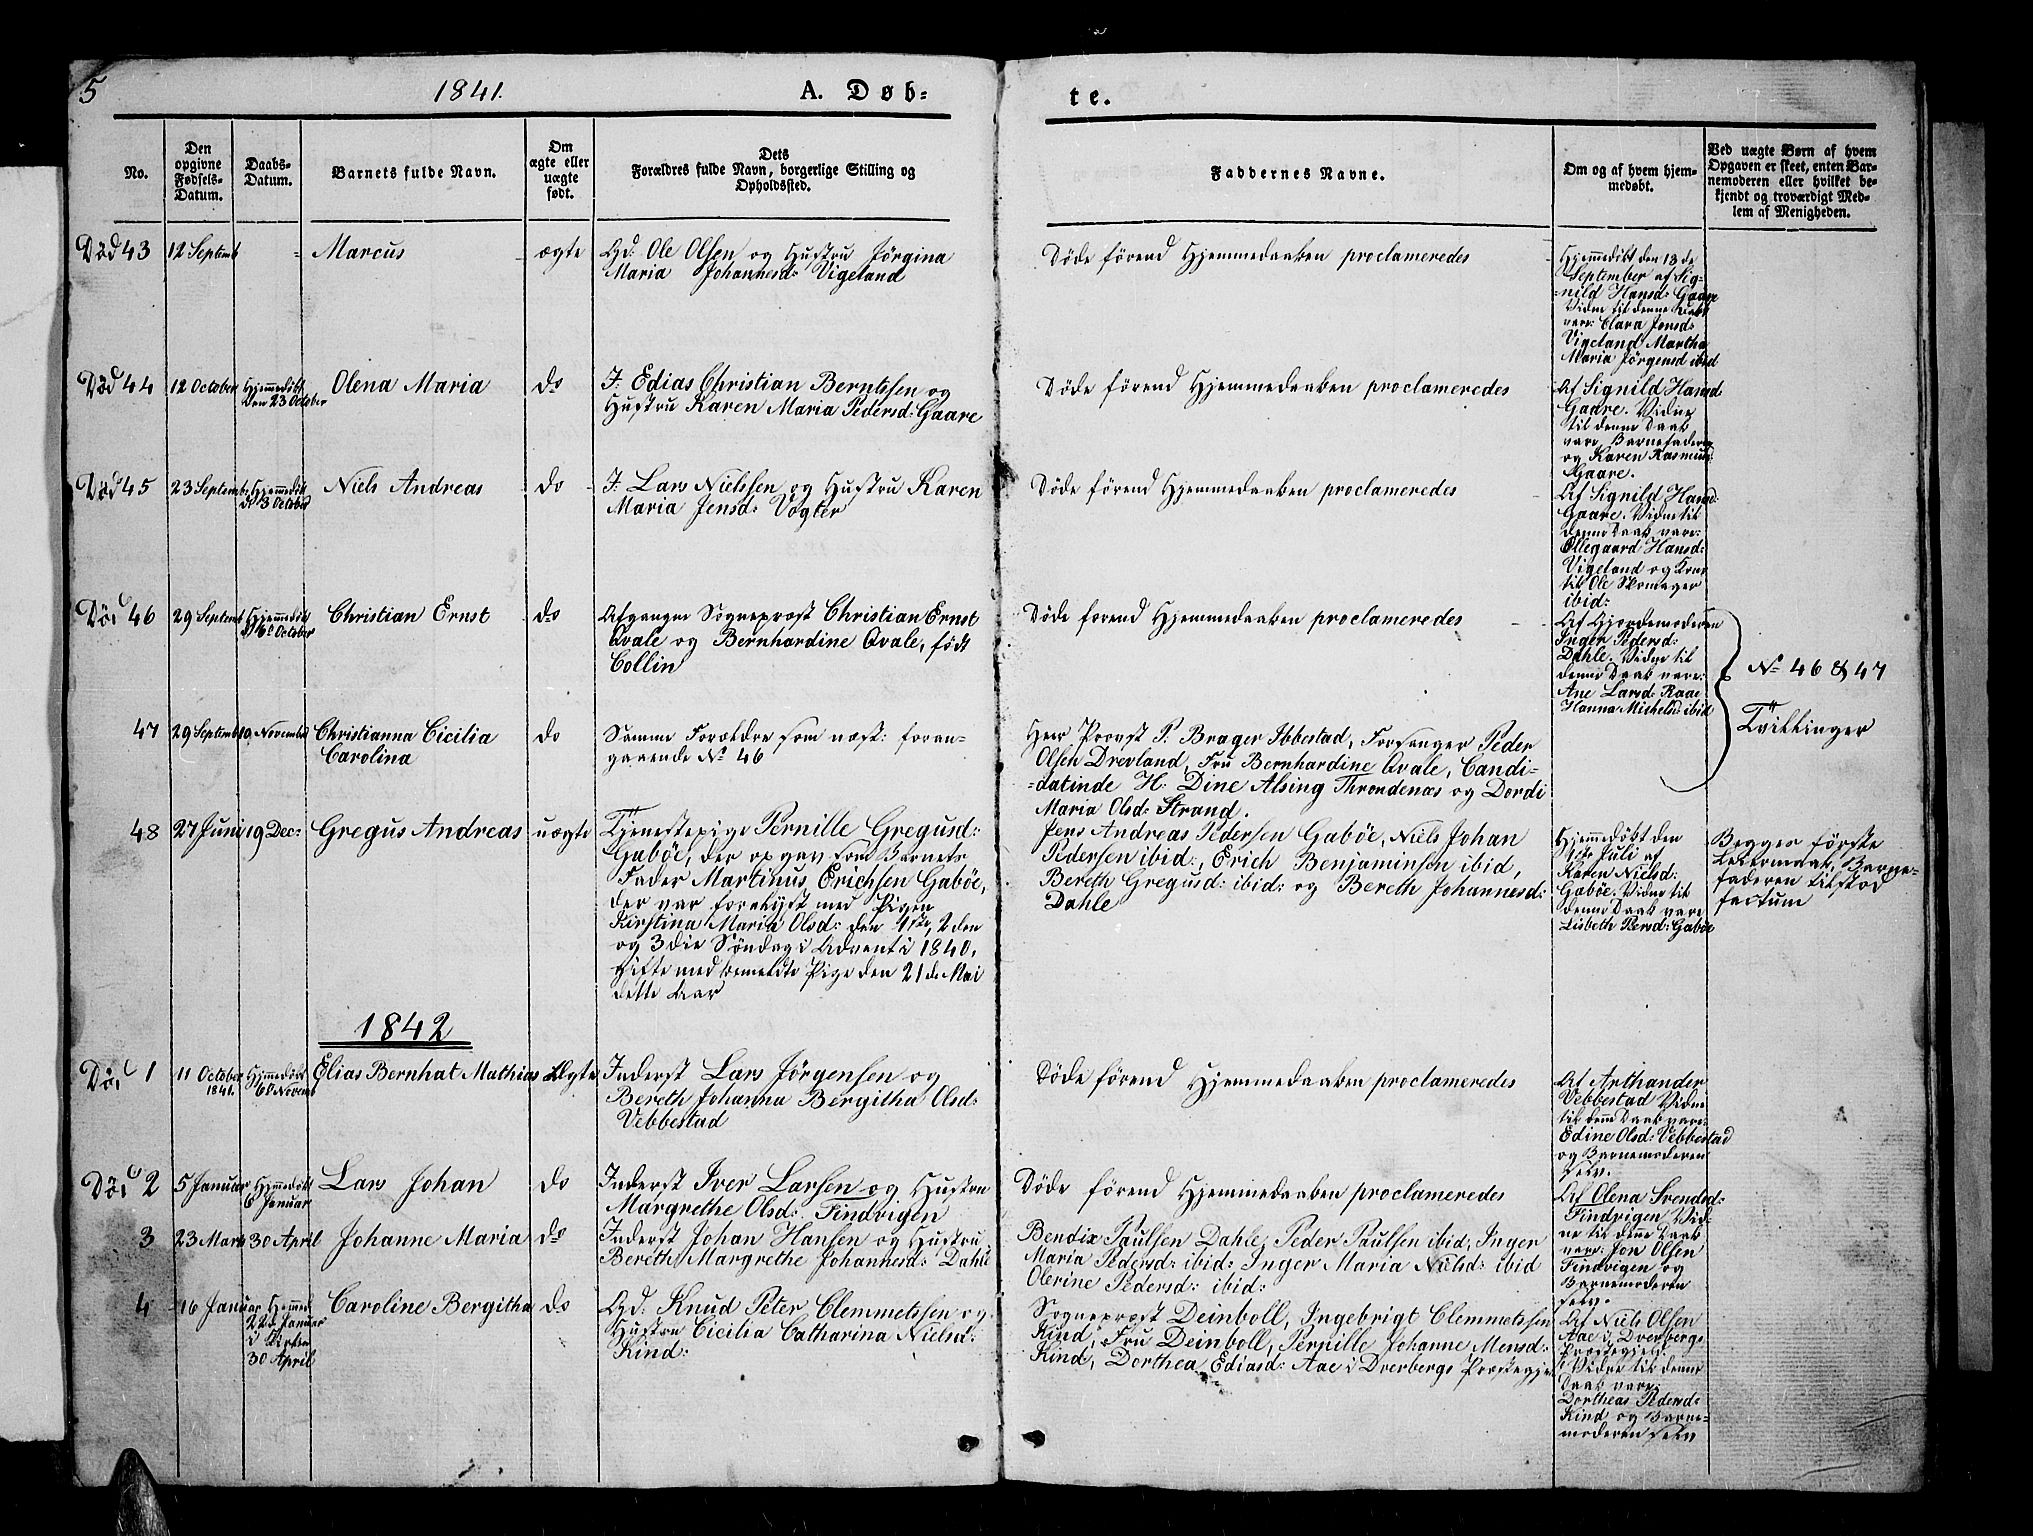 5
1841.
A. Døb-
te.
No.
Den
opgivne
Fødsels-
Datum.
Daabs-
Datum.
Barnets fulde Navn.
Om
ægte eller
uægte
født.
Dets
Forældres fulde Navn, borgerlige Stilling og
Opholdssted.
Faddernes Navne.
Om og af hvem hjem-
medøbt.
Ved uægte Børn af hvem
Opgaven er skeet, enten Bar-
nemoderen eller hvilket be-
kjendt og troværdigt Med-
lem af Menigheden.
Død 43
12 Septemb
Marcus
ægte
Gd: Ole Olsen og Hustru Jörgina
Maria Johannesd: Vigeland
Döde förend Hjemmedaaben proclameredes
Hjemmedöbt den 13 de
September af Sig-
=nild Hansd: Gaare
Vidne til denne Daab
vare: Clara Jensd:
Vigeland Martha
Maria Jörgensd ibid
Død 44
12 October
Hjemmedöbt
den 23 October
Olena Maria
do
I: Edias Christian Berntsen og
Hustru Karen Maria Pedersd: Gaare
Döde förend Hjemmedaaben proclameredes
Af Signild Hansd
Gaare. Vidne
til denne Daab
vare Barnefaderen
og Karen Rasmusd:
Gaare.
Død 45
23 Septemb
Hjemmedöbt
d: 3 October
Niels Andreas
do
I: Lars Nielssen og Hustru Karen
Maria Jensd: Vogter
Döde förend Hjemmedaaben proclameredes
Af Signild Hansd:
Gaare. Vidne til
denne Daab vare:
Ellegaard Hansd:
Vigeland og Kone
til Ole Skomager
ibid:
46
29 Septemb
Hjemmedöbt
6 October
Christian Ernst
do
Afgangne Sogneprest Christian Ernst
Qvale og Bernhardine Qvale, födt
Collin
Döde forend Hjemmedaaben proclameredes
Af Gjordemoderen
Inger Pedersd:
Dahle. Vidne til
denne Daab vare:
Ane Larsd: Raae
Hanna Michelsd: ibid
No 46 & 47
Tvillinger
47
29 Septemb
19 Novemb
Christianna Cicilia
Carolina
do
Samme Forældre som næst: foran=
gaaende No 46
Herr Provst P. Brager Ibbestad, Forsanger Peder
Olsen Drevland, Fru Bernhardine Qvale, Candi=
=datinde H. Dine Alsing Throndenæs og Dordi
Maria Olsd: Strand.
48
27 Juni
19 Dec:
Gregus Andreas
uægte
Tjenestepige Pernille Gregusd:
Gaböe, der opgav som Barnets
Fader Martinus Erichsen Gaböe,
der var forelyst med Pigen
Kirstina Maria Olsd: den 1ste, 2 den
og 3 die Søndag i Advent i 1840,
Gifte med bemeldte Pige den 21 de Mai
dette Aar
Jens Andreas Pedersen Gaböe, Niels Johan
Pedersen ibid:, Erich Benjaminsen ibid,
Bereth Gregusd: ibid: og Bereth Johannesd:
Dahle
Hjemmedöbt den
1ste Juli af
Karen Nielsd:
Gaböe. Vidne til
denne Daab vare
Lisbeth Persd: Gaböe
Begges förste
Leiermaal, Barne=
faderen tilstod
factum
1842
1
11 October
1841.
Hjemmedöbt
6 Novemb
Elias Bernhat Mathias
Ægte
Inderst Lars Jörgensen og
Bereth Johanna Bergitha Olsd:
Vebbestad
Döde förend Hjemmedaaben proclameredes
Af Arthander
Vebbestad Vidne
til denne Daab vare:
Edine Olsd: Vebbestad
og Barnemoderen
selv.
2
5 Januar
Hjemmedöbt
6 Januar
Lars Johan
do
Inderst Iver Larsen og Hustru
Margrethe Olsd: Findvigen
Döde förend Hjemmedaaben proclameredes
Af Olena Svendsd:
Findvigen Vid=
ne til dene Daab
vare: Jon Olsen
Findvigen og
Barnemoderen
selv.
3
23 Marts
30 April
Johanne Maria
do
Inderst Johan Hansen og Hustru
Bereth Margrethe Johannesd: Dahle
Bendix Paulsen Dahle, Peder Paulsen ibid, Inger
Maria Pedersd: ibid: Inger Maria Nielsd: ibid
Olerine Pedersd: ibid:
4
16 Januar
Hjemmed
22 Januar
i Kirken
30 April
Caroline Bergitha
do
Gd: Knud Peter Clemmetssen og
Hustru Cicilia Catharina Nielsd:
Kind:
Sogneprest Deinboll, Ingebrigt Clemmetssen
Kind, Fru Deinboll, Pernille Johanne Mensd:
Kind, Dorthea Ediasd: Aae i Dverbergs Præstegje
Af Niels Olsen
Aae i Dverbergs
Præstegjeld
Vidne til denne
Daab vare:
Dortheas Pedersd:
Kind og Barne=
moderen selv